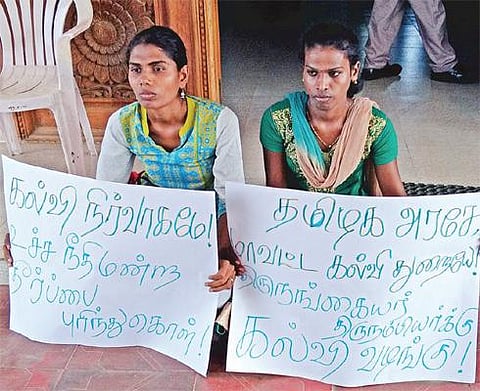 கல்வி நிர்வாகமே!
உச்ச நீதிமன்ற
தீர்ப்பை
புரிந்துகொள்!
தமிழக அரசே,
மாவட்ட கல்வி துறையே!
திருநங்கையர்
திருநம்பியர்க்கு
கல்வி வழங்கு!